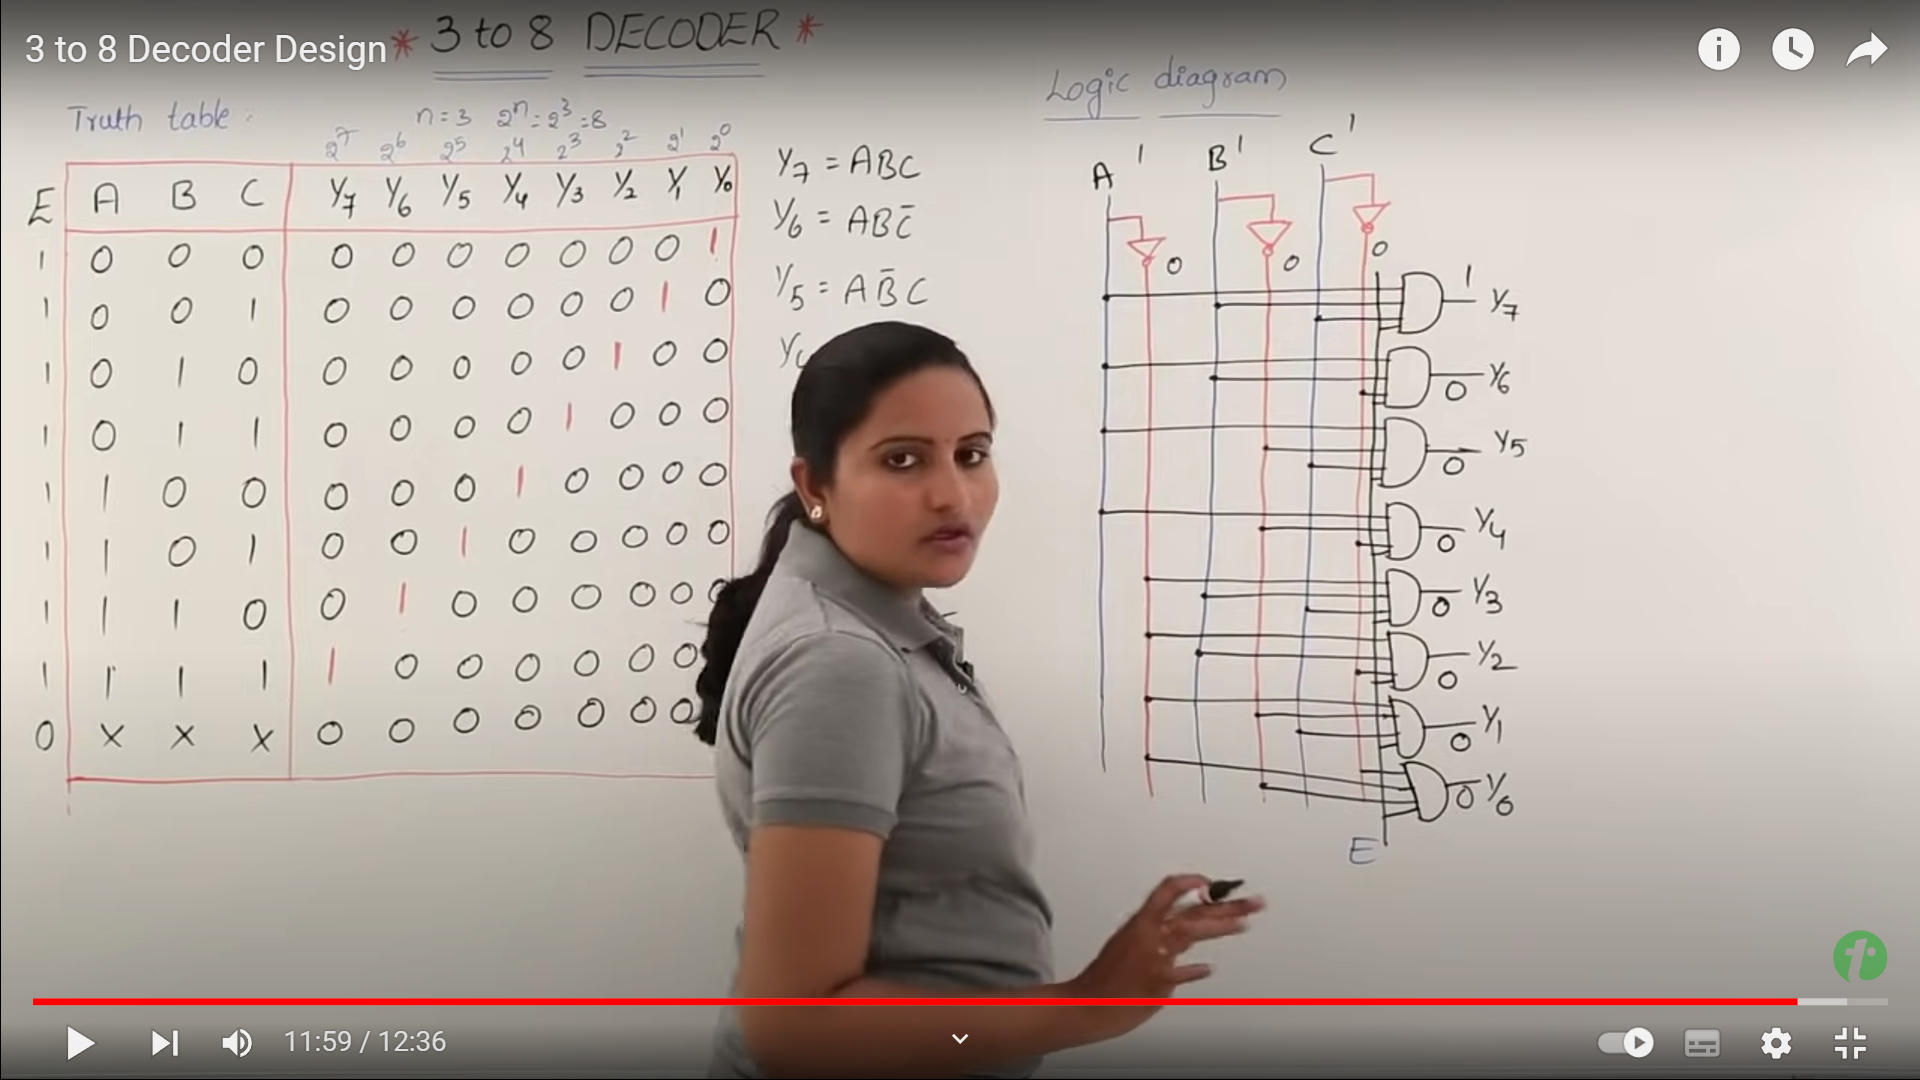 3 to 8 Decoder Design
* 3 to 8 DECODER *
Truth table :
n = 3 2ⁿ = 2³ = 8
2⁷ 2⁶ 2⁵ 2⁴ 2³ 2² 2¹ 2⁰
E A B C Y₇ Y₆ Y₅ Y₄ Y₃ Y₂ Y₁ Y₀
1 0 0 0 0 0 0 0 0 0 0 1
1 0 0 1 0 0 0 0 0 0 1 0
1 0 1 0 0 0 0 0 0 1 0 0
1 0 1 1 0 0 0 0 1 0 0 0
1 1 0 0 0 0 0 1 0 0 0 0
1 1 0 1 0 0 1 0 0 0 0 0
1 1 1 0 0 1 0 0 0 0 0 0
1 1 1 1 1 0 0 0 0 0 0
0 X X X 0 0 0 0 0 0 0
Y₇ = ABC
Y₆ = ABC̄
Y₅ = AB̄C
Logic diagram
A 1 B 1 C 1
0 0 0
1 Y₇
0 Y₆
0 Y₅
0 Y₄
0 Y₃
0 Y₂
0 Y₁
0 Y₀
E
11:59 / 12:36